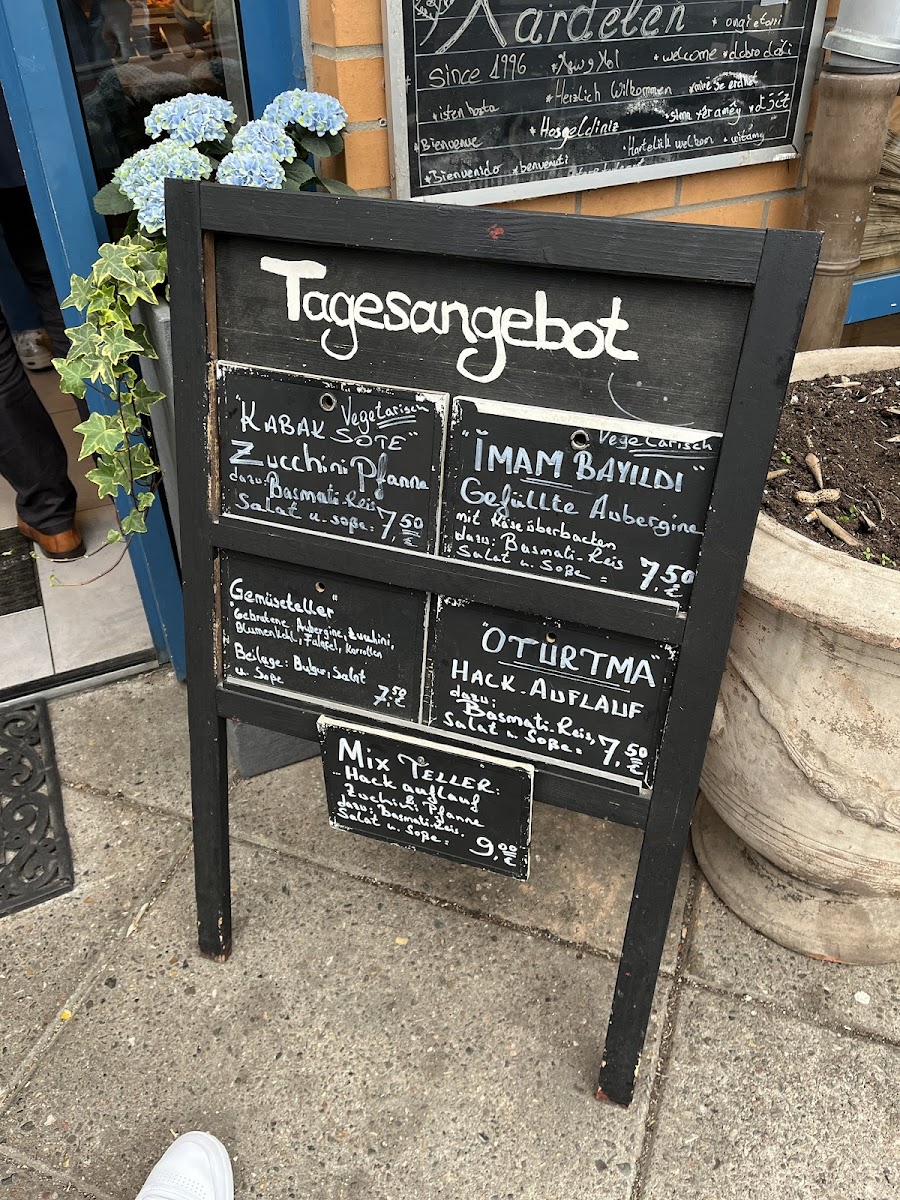 Kardelen
* angietoni
since 1996
* welcome
* dobro došli
* Herzlich Willkommen
* mirë se erdhët
* Bienvenue
* Hoşgeldiniz
* Hartelijk welkom
* witamy
* Bienvenido * benvenuti
Tagesangebot
Vegetarisch
"KABAK SOTE"
Zucchini Pfanne
dazu: Basmati-Reis
Salat u. Soße: 7,50 €
Vegetarisch
"İMAM BAYILDI"
Gefüllte Aubergine
mit Käse überbacken
dazu: Basmati-Reis
Salat u. Soße = 7,50 €
"Gemüseteller"
Gebratene Aubergine, Zucchini,
Blumenkohl, Falafel, Karotten
Beilage: Bulgur, Salat
u. Soße 7,50 €
"OTURTMA"
HACK-AUFLAUF
dazu:
Basmati-Reis,
Salat u. Soße = 7,50 €
MIX TELLER:
- Hackauflauf
&
Zuchini Pfanne
dazu: Basmati-Reis,
Salat u. Soße = 9,00 €